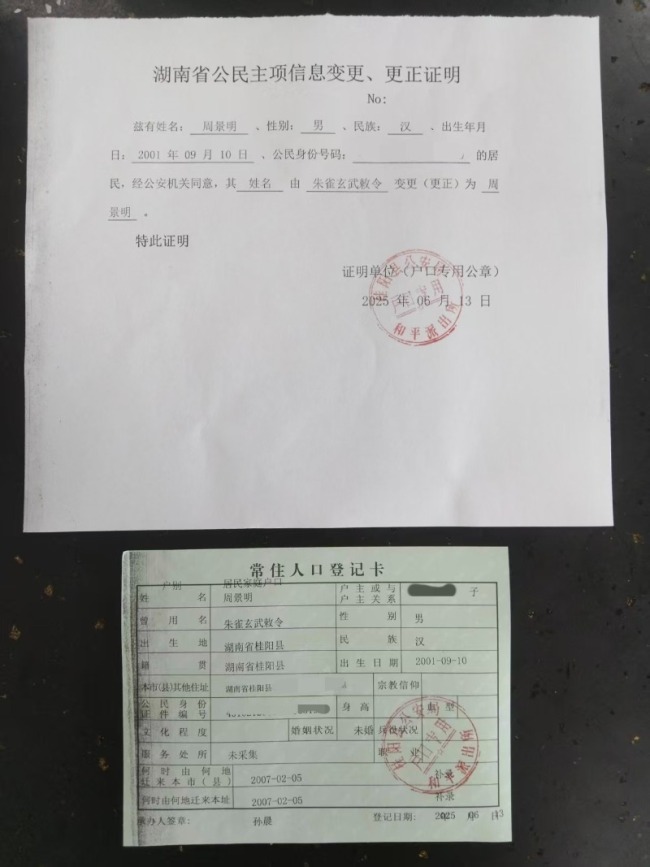 湖南省公民主项信息变更、更正证明
No:
兹有姓名: 周景明 、性别: 男 、民族: 汉 、出生年月
日: 2001 年 09 月 10 日 、公民身份号码: 的居
民,经公安机关同意,其 姓名 由 朱雀玄武敕令 变更(更正)为 周
景明 。
特此证明
证明单位(户口专用公章)
2025 年 06 月 13 日
常住人口登记卡
户别 居民家庭户口
姓名 周景明 户主或与户主关系 子
曾用名 朱雀玄武敕令 性别 男
出生地 湖南省桂阳县 民族 汉
籍贯 湖南省桂阳县 出生日期 2001-09-10
本市(县)其他住址 湖南省桂阳县 宗教信仰
公民身份证件编号 身高 血型
文化程度 婚姻状况 未婚 兵役状况
服务处所 未采集 职业
何时由何地迁来本市(县) 2007-02-05 补录
何时由何地迁来本址 2007-02-05 补录
承办人签章: 孙晨 登记日期: 2025 年 06 月 13 日